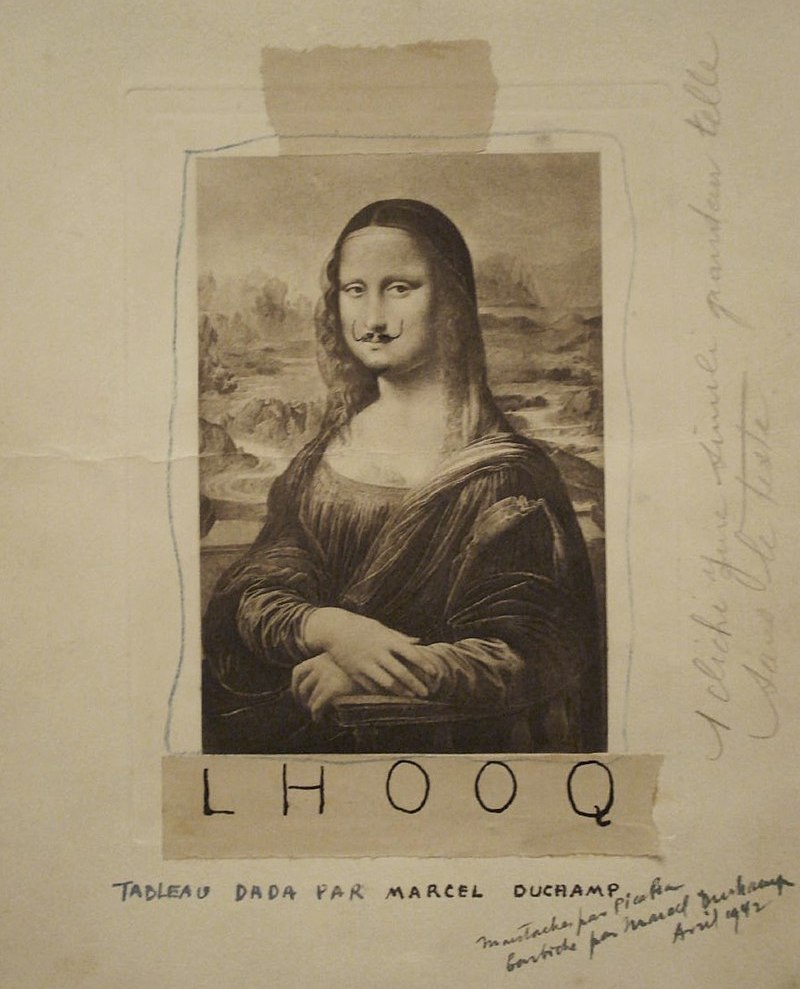 L H O O Q
TABLEAU DADA PAR MARCEL DUCHAMP
Moustaches par Picabia
barbiche par Marcel Duchamp
Avril 1942
1 cliché simili grandeur telle
sans le texte